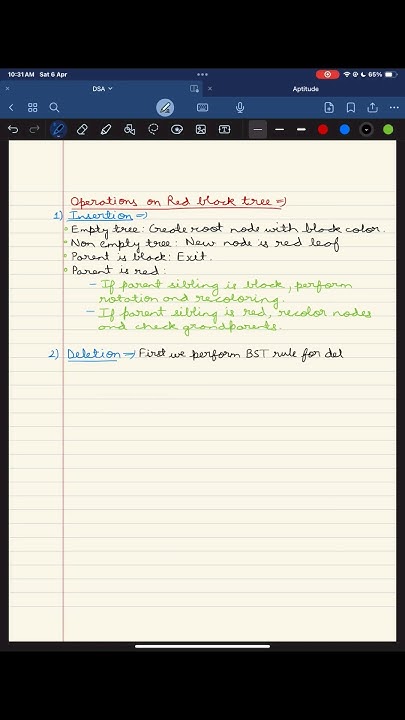 10:31 AM Sat 6 Apr
65%
DSA
Aptitude
Operations on Red black tree ⇒
1) Insertion ⇒
Empty tree: Create root node with black color.
Non empty tree: New node is red leaf
Parent is black: Exit.
Parent is red:
- If parent sibling is black, perform
rotation and recoloring.
- If parent sibling is red, recolor nodes
and check grandparents.
2) Deletion ⇒ First we perform BST rule for del